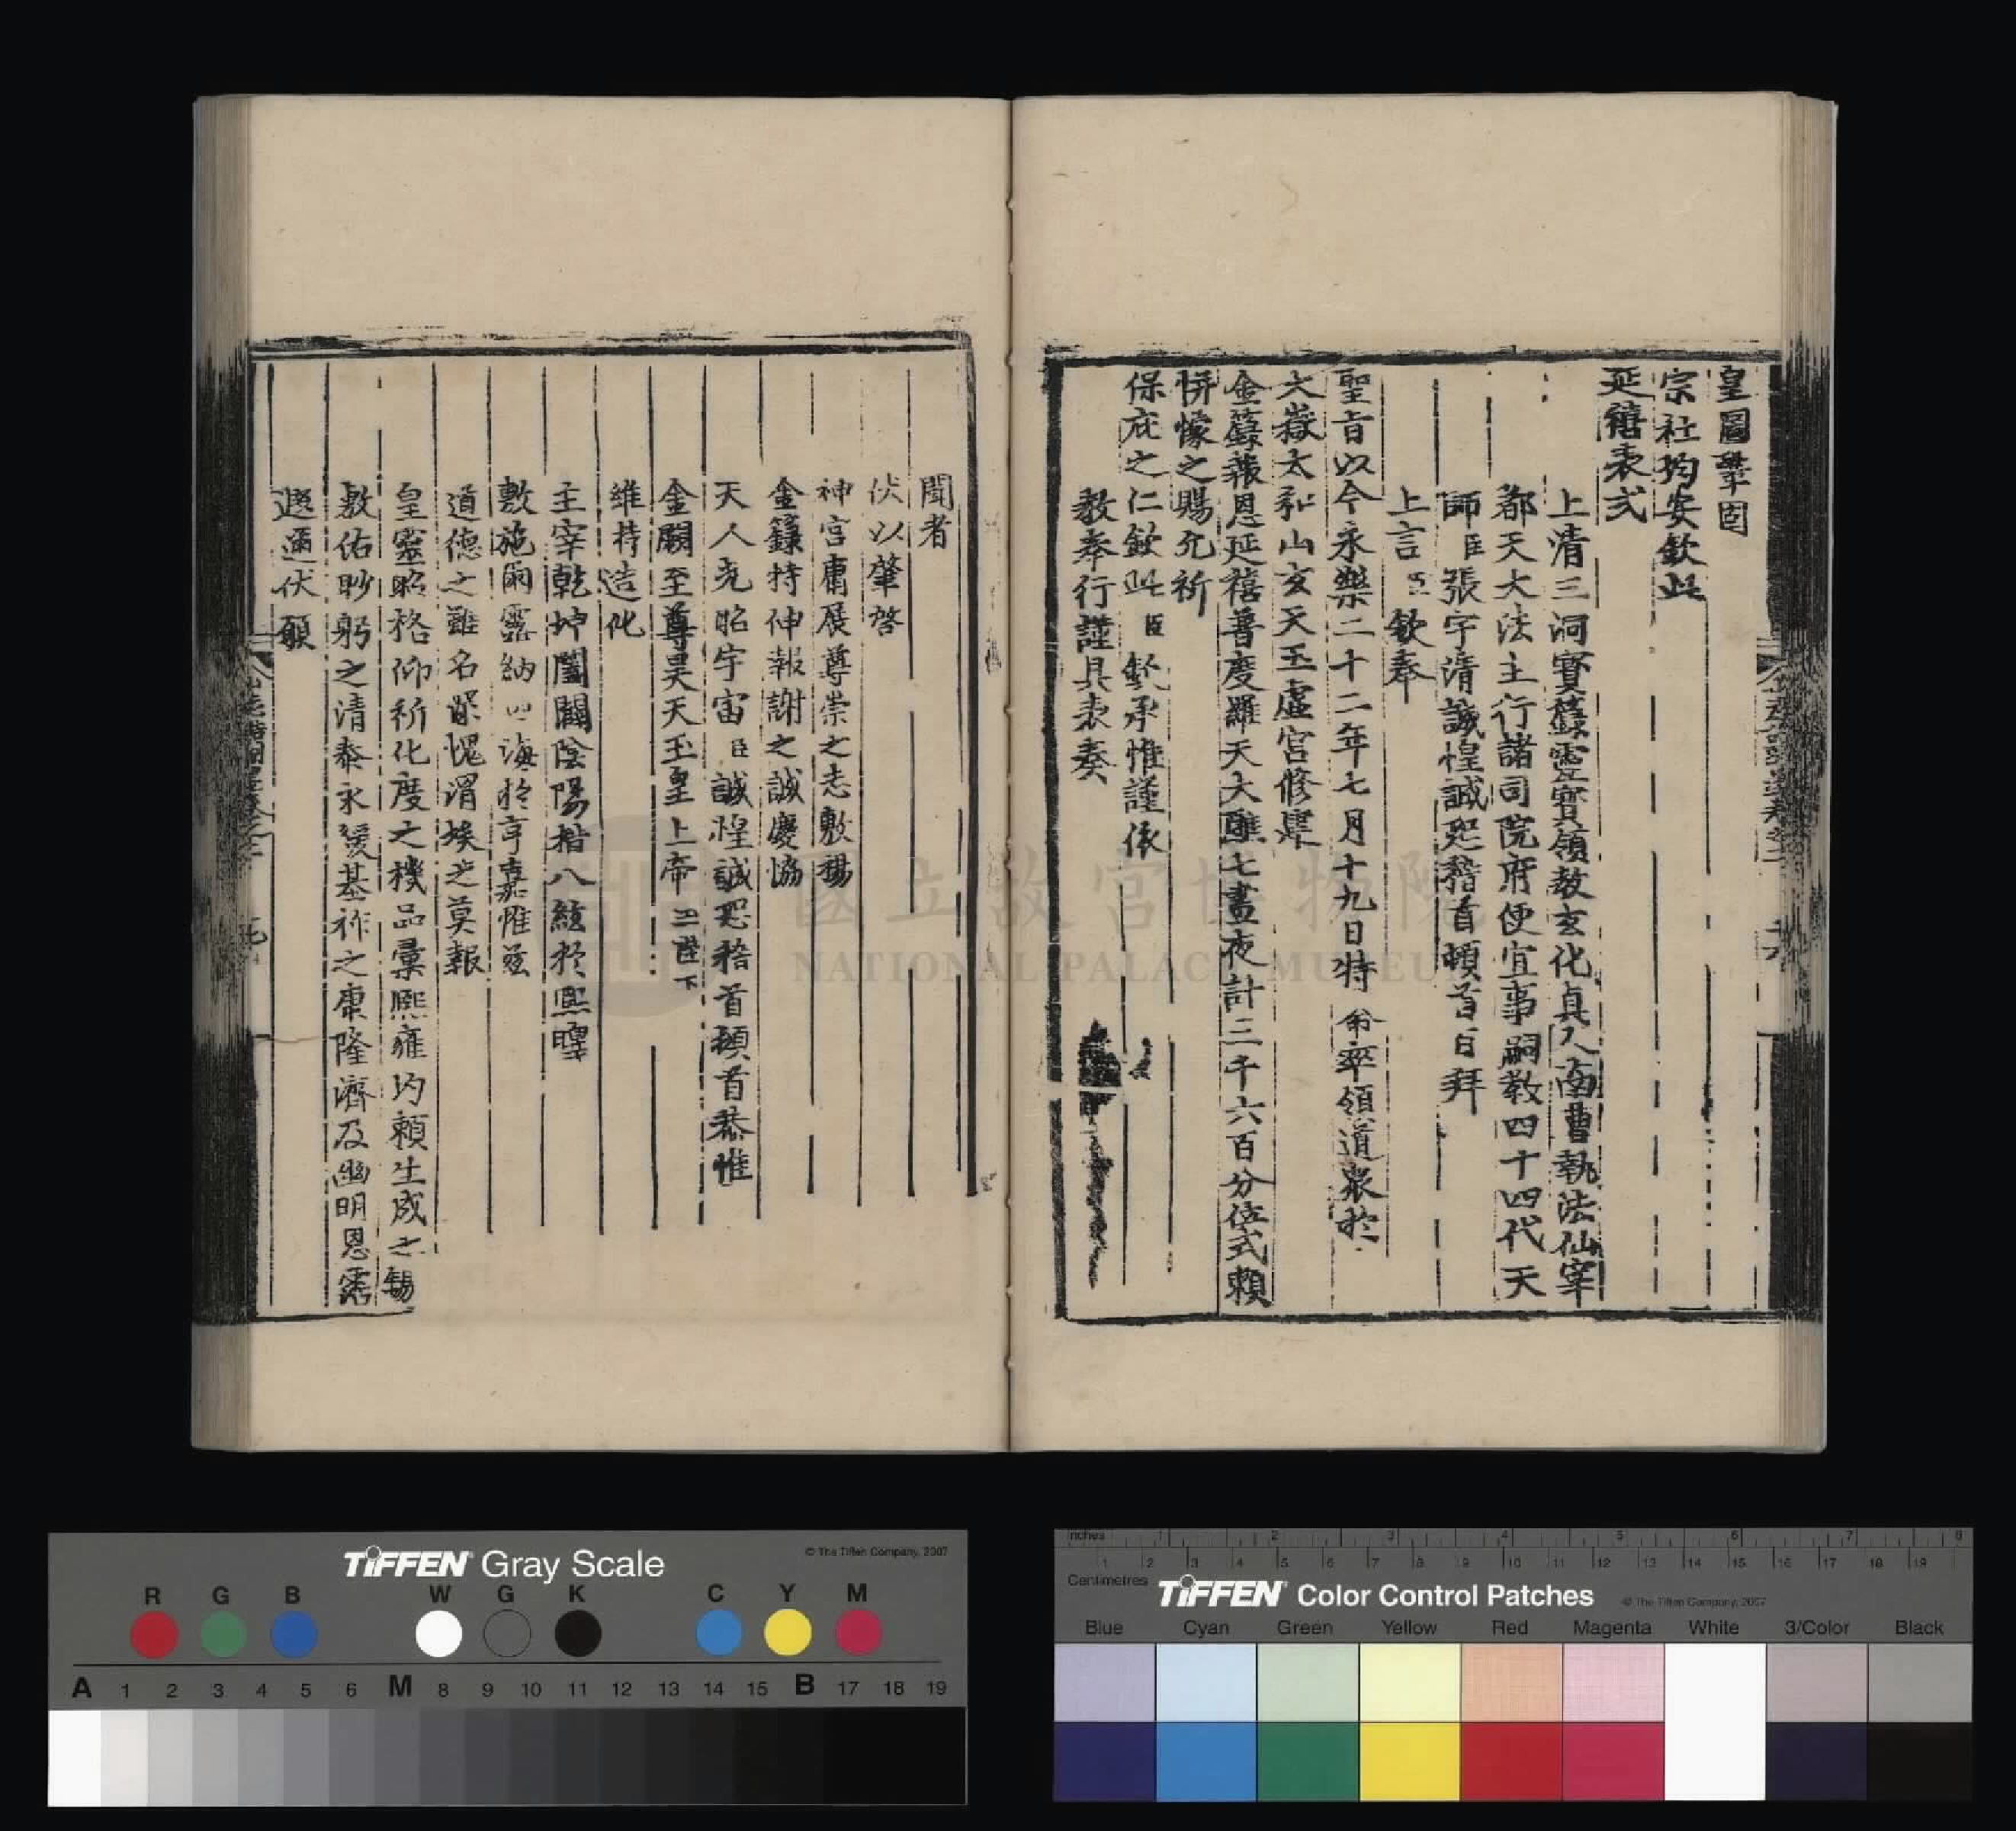 皇圖鞏固
宗社均安欽此
延禧表式
上清三洞寶籙靈寶領教玄化真人南曹執法仙宰
都天大法主行諸司院府便宜事嗣教四十四代天
師臣張宇清誠惶誠恐稽首頓首百拜
上言臣欽奉
聖旨以今永樂二十二年七月十九日特命率領道眾於
大嶽太和山玄天玉虛宮修建
金籙報恩延禧普度羅天大醮七晝夜計三千六百分位式賴
帡幪之賜允祈
保庇之仁欽此臣欽承惟謹依
教奉行謹具表奏
聞者
伏以肇啓
神宮庸展尊崇之志敷揚
金籙特伸報謝之誠慶協
天人光昭宇宙臣誠惶誠恐稽首頓首恭惟
金闕至尊昊天玉皇上帝陛下
維持造化
主宰乾坤闔闢陰陽楷八紘於熙皞
敷施雨露納四海於亨嘉惟茲
道德之難名深愧涓埃之莫報
皇靈昭格仰祈化度之機品彙熙雍均賴生成之錫
敷佑眇躬之清泰永綏基祚之康隆濟及幽明恩霑
遐邇伏願
國立故宮博物院
NATIONAL PALACE MUSEUM
TIFFEN Gray Scale
© The Tiffen Company, 2007
R G B W G K C Y M
A 1 2 3 4 5 6 M 8 9 10 11 12 13 14 15 B 17 18 19
Inches 1 2 3 4 5 6 7 8
Centimetres 1 2 3 4 5 6 7 8 9 10 11 12 13 14 15 16 17 18 19
TIFFEN Color Control Patches
© The Tiffen Company, 2007
Blue Cyan Green Yellow Red Magenta White 3/Color Black